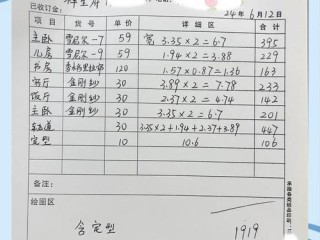 已收订金：
24年6月12日
项目 货号 单价 详细区 合计
主卧 雪尼尔-7 59 宽 3.35×2=6.7 395
儿房 雪尼尔-9 59 1.94×2=3.88 229
书房 120 1.57×0.87=1.36 163
客厅 金刚纱 30 3.89×2=7.78 233
饭厅 金刚纱 30 2.37×2=4.74 142
主卧 金刚纱 30 3.35×2=6.7 201
轨道 30 3.35×2+1.94+2.37+3.89 447
定型 10 10.6 106
备注：
绘图区
含定型 1919